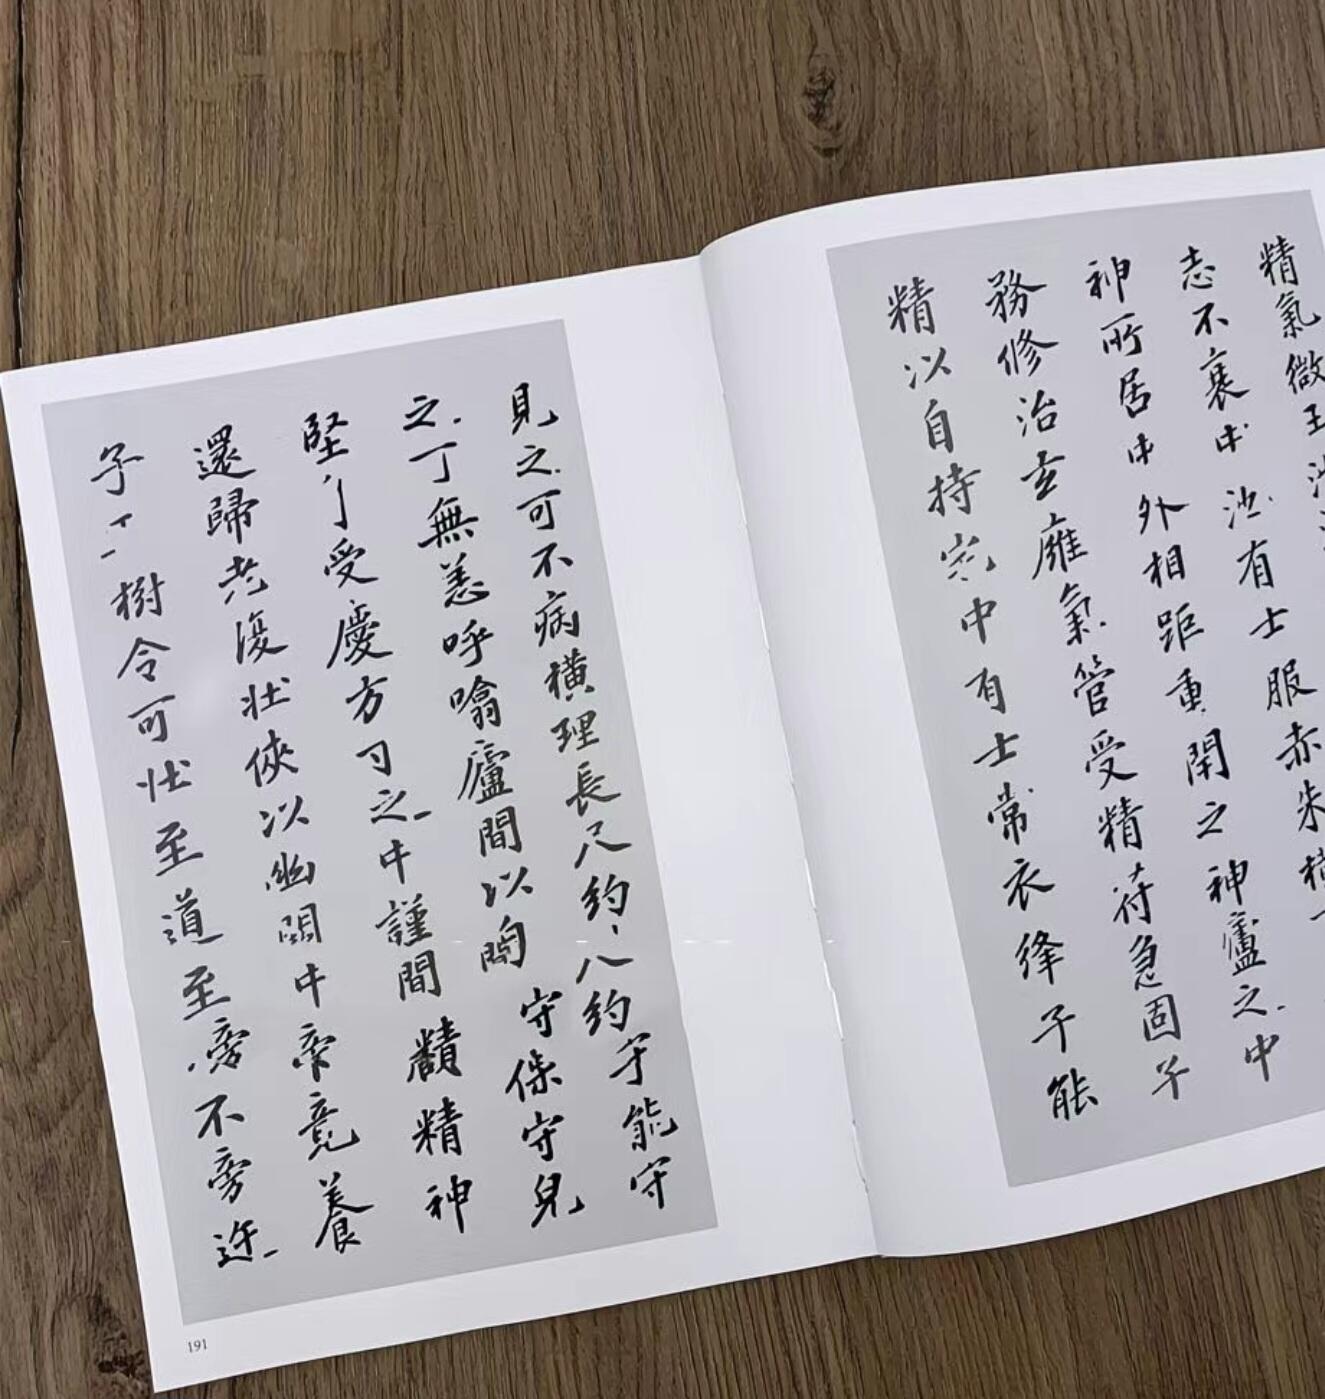 精氣微玉
志不衰中池有士服赤朱橫
神所居中外相距重閉之神廬之中
務修治玄廱氣管受精符急固子
精以自持宅中有士常衣絳子能
見之可不病橫理長尺約八約子能守
之丁無恙呼噏廬間以自守保守皃
堅丁受慶方寸之中謹間精神
還歸老復壯俠以幽闕中帝竟養
子丁樹令可壯至道至旁不旁迕
191